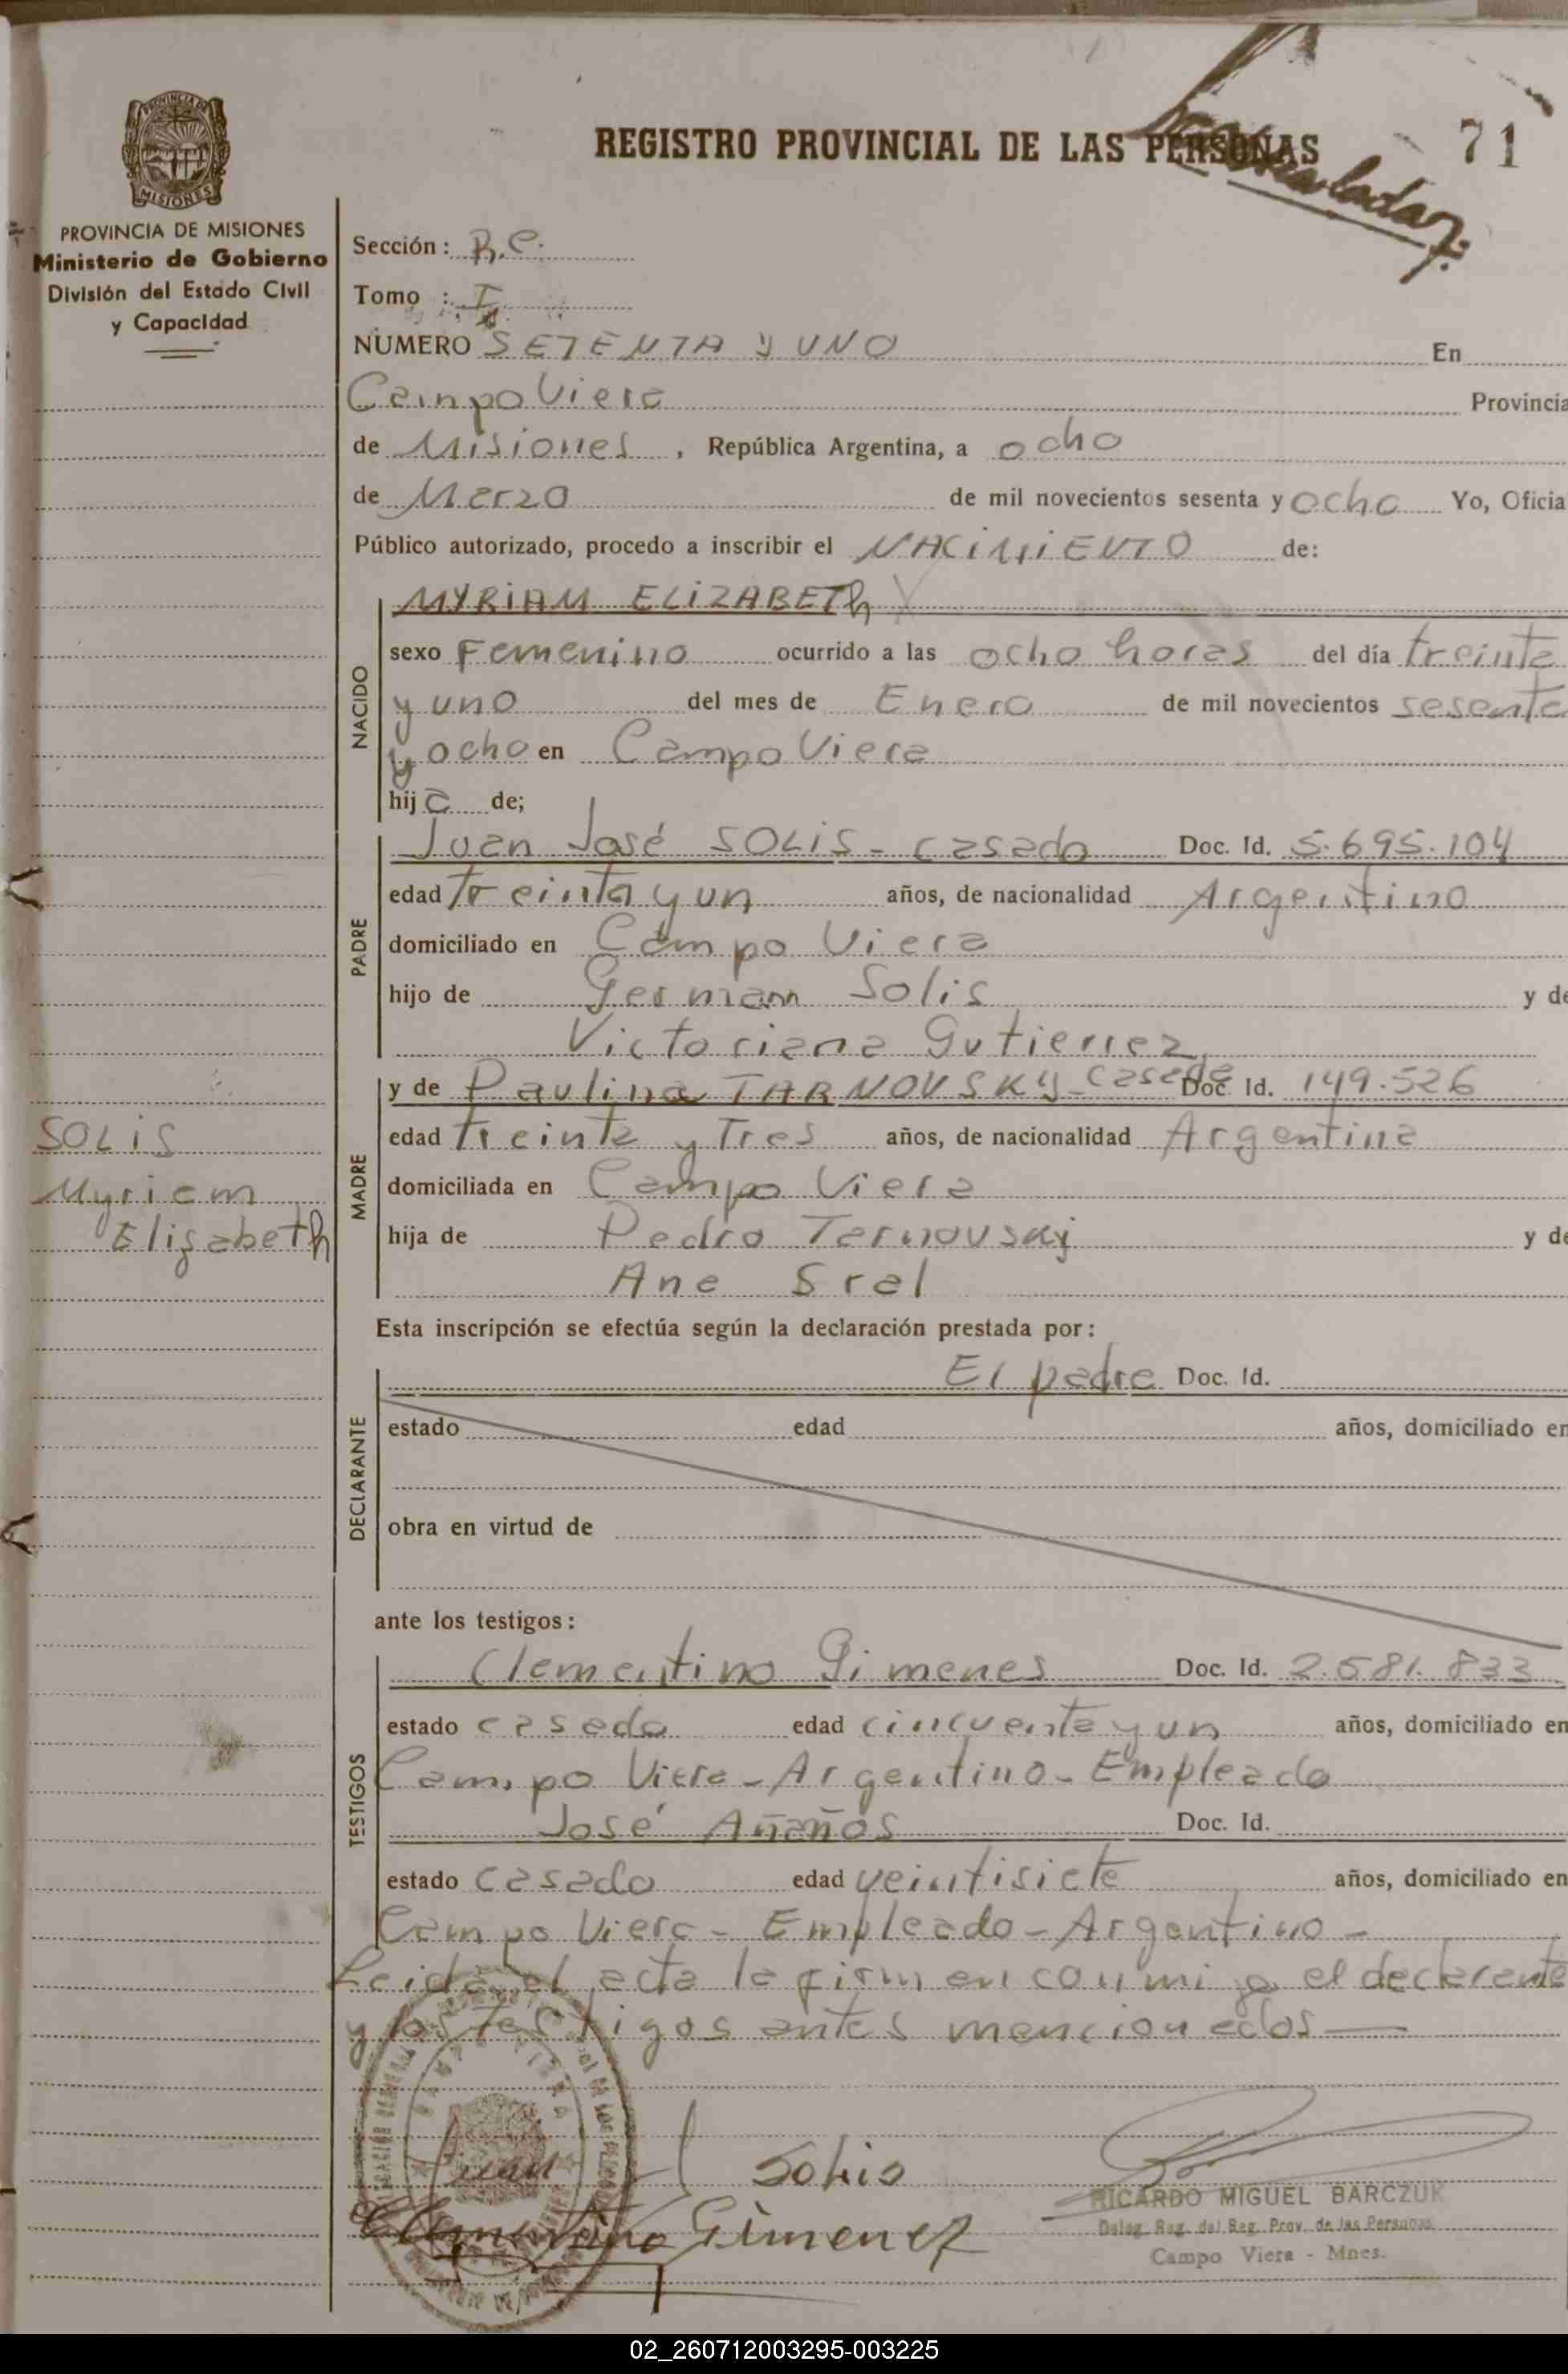 REGISTRO PROVINCIAL DE LAS PERSONAS
71
PROVINCIA DE
MISIONES
PROVINCIA DE MISIONES
Ministerio de Gobierno
División del Estado Civil
y Capacidad
Sección: R.C.
Tomo : I
NUMERO SETENTA y UNO En
Campo Viera Provincia
de Misiones, República Argentina, a ocho
de Marzo de mil novecientos sesenta y ocho Yo, Oficia
Público autorizado, procedo a inscribir el NACIMIENTO de:
NACIDO
MYRIAM ELIZABETh
sexo Femenino ocurrido a las ocho horas del día treinta
y uno del mes de Enero de mil novecientos sesenta
y ocho en Campo Viera
hija de;
PADRE
Juan José SOLIS - casado Doc. Id. 5.695.104
edad treinta y un años, de nacionalidad Argentino
domiciliado en Campo Viera
hijo de Germann Solis y de
Victoriana Gutierrez
MADRE
y de Paulina TARNOVSKY - casada Doc. Id. 149.526
edad treinta y Tres años, de nacionalidad Argentina
domiciliada en Campo Viera
hija de Pedro Tarnovskj y de
Ana Sral
SOLIS
Myriam
Elizabeth
Esta inscripción se efectúa según la declaración prestada por:
DECLARANTE
El padre Doc. Id.
estado edad años, domiciliado en
obra en virtud de
ante los testigos:
TESTIGOS
Clementino Gimenes Doc. Id. 2.581.833
estado casado edad cincuenta y un años, domiciliado en
Campo Viera - Argentino - Empleado
José Añaños Doc. Id.
estado casado edad veintisiete años, domiciliado en
Campo Viera - Empleado - Argentino -
Leida el acta la firman conmigo el declarante
y los Testigos antes mencionados
Juan J Solis
Clementino Gimenez
RICARDO MIGUEL BARCZUK
Deleg. Reg. del Reg. Prov. de las Personas
Campo Viera - Mnes.
02_260712003295-003225